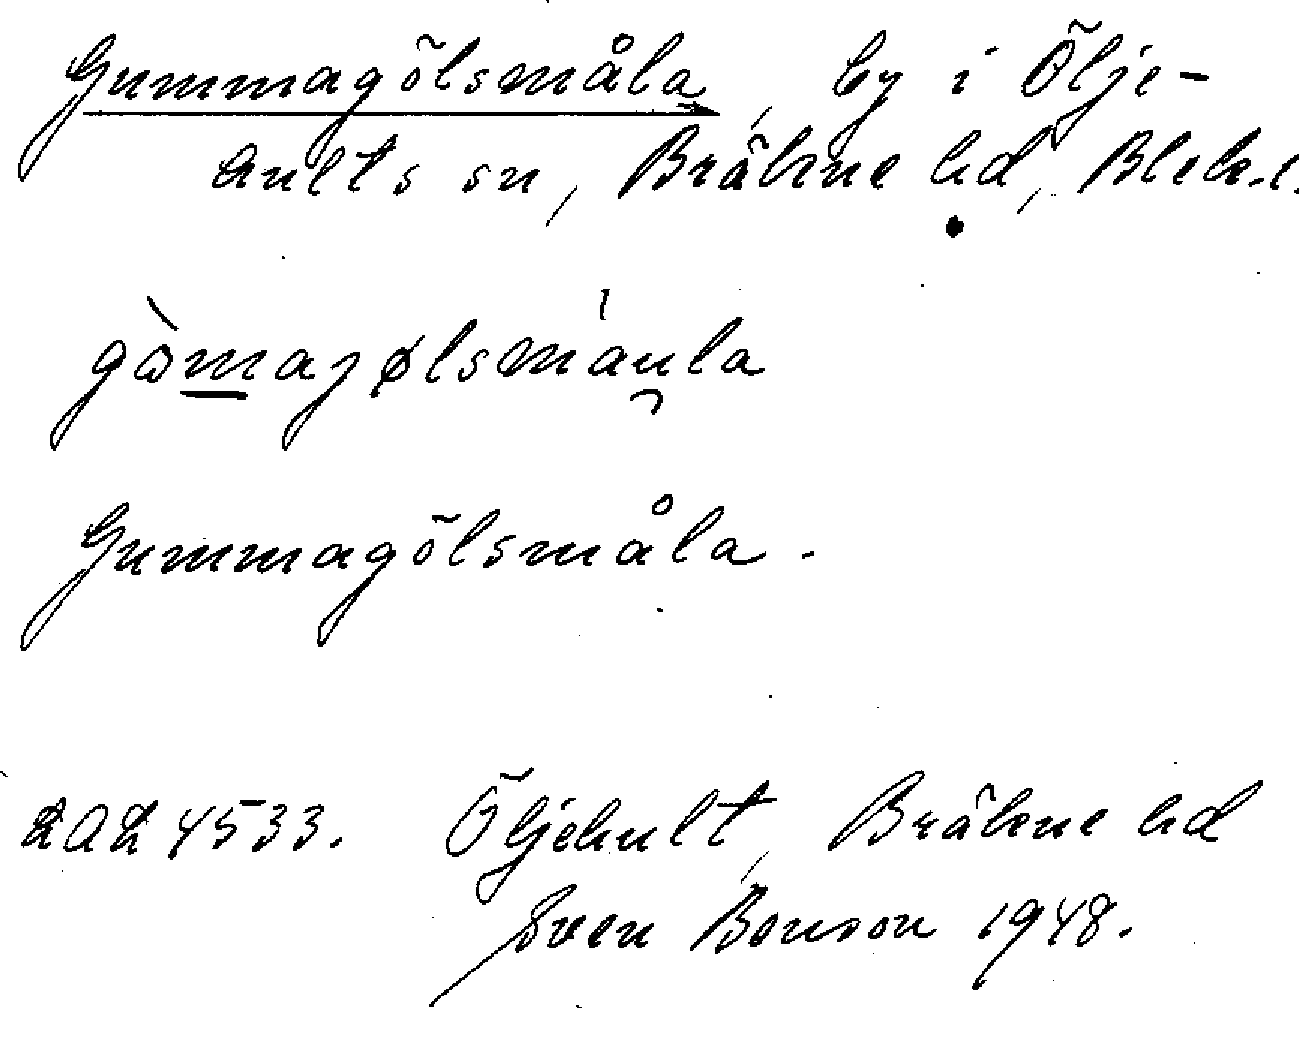 Gummagölsmåla, by i Ölje-
hults sn, Bräkne hd, Blek.l.
gωmagølsmaula
Gummagölsmåla.
LAL 4533. Öljehult, Bräkne hd
Sven Benson 1948.